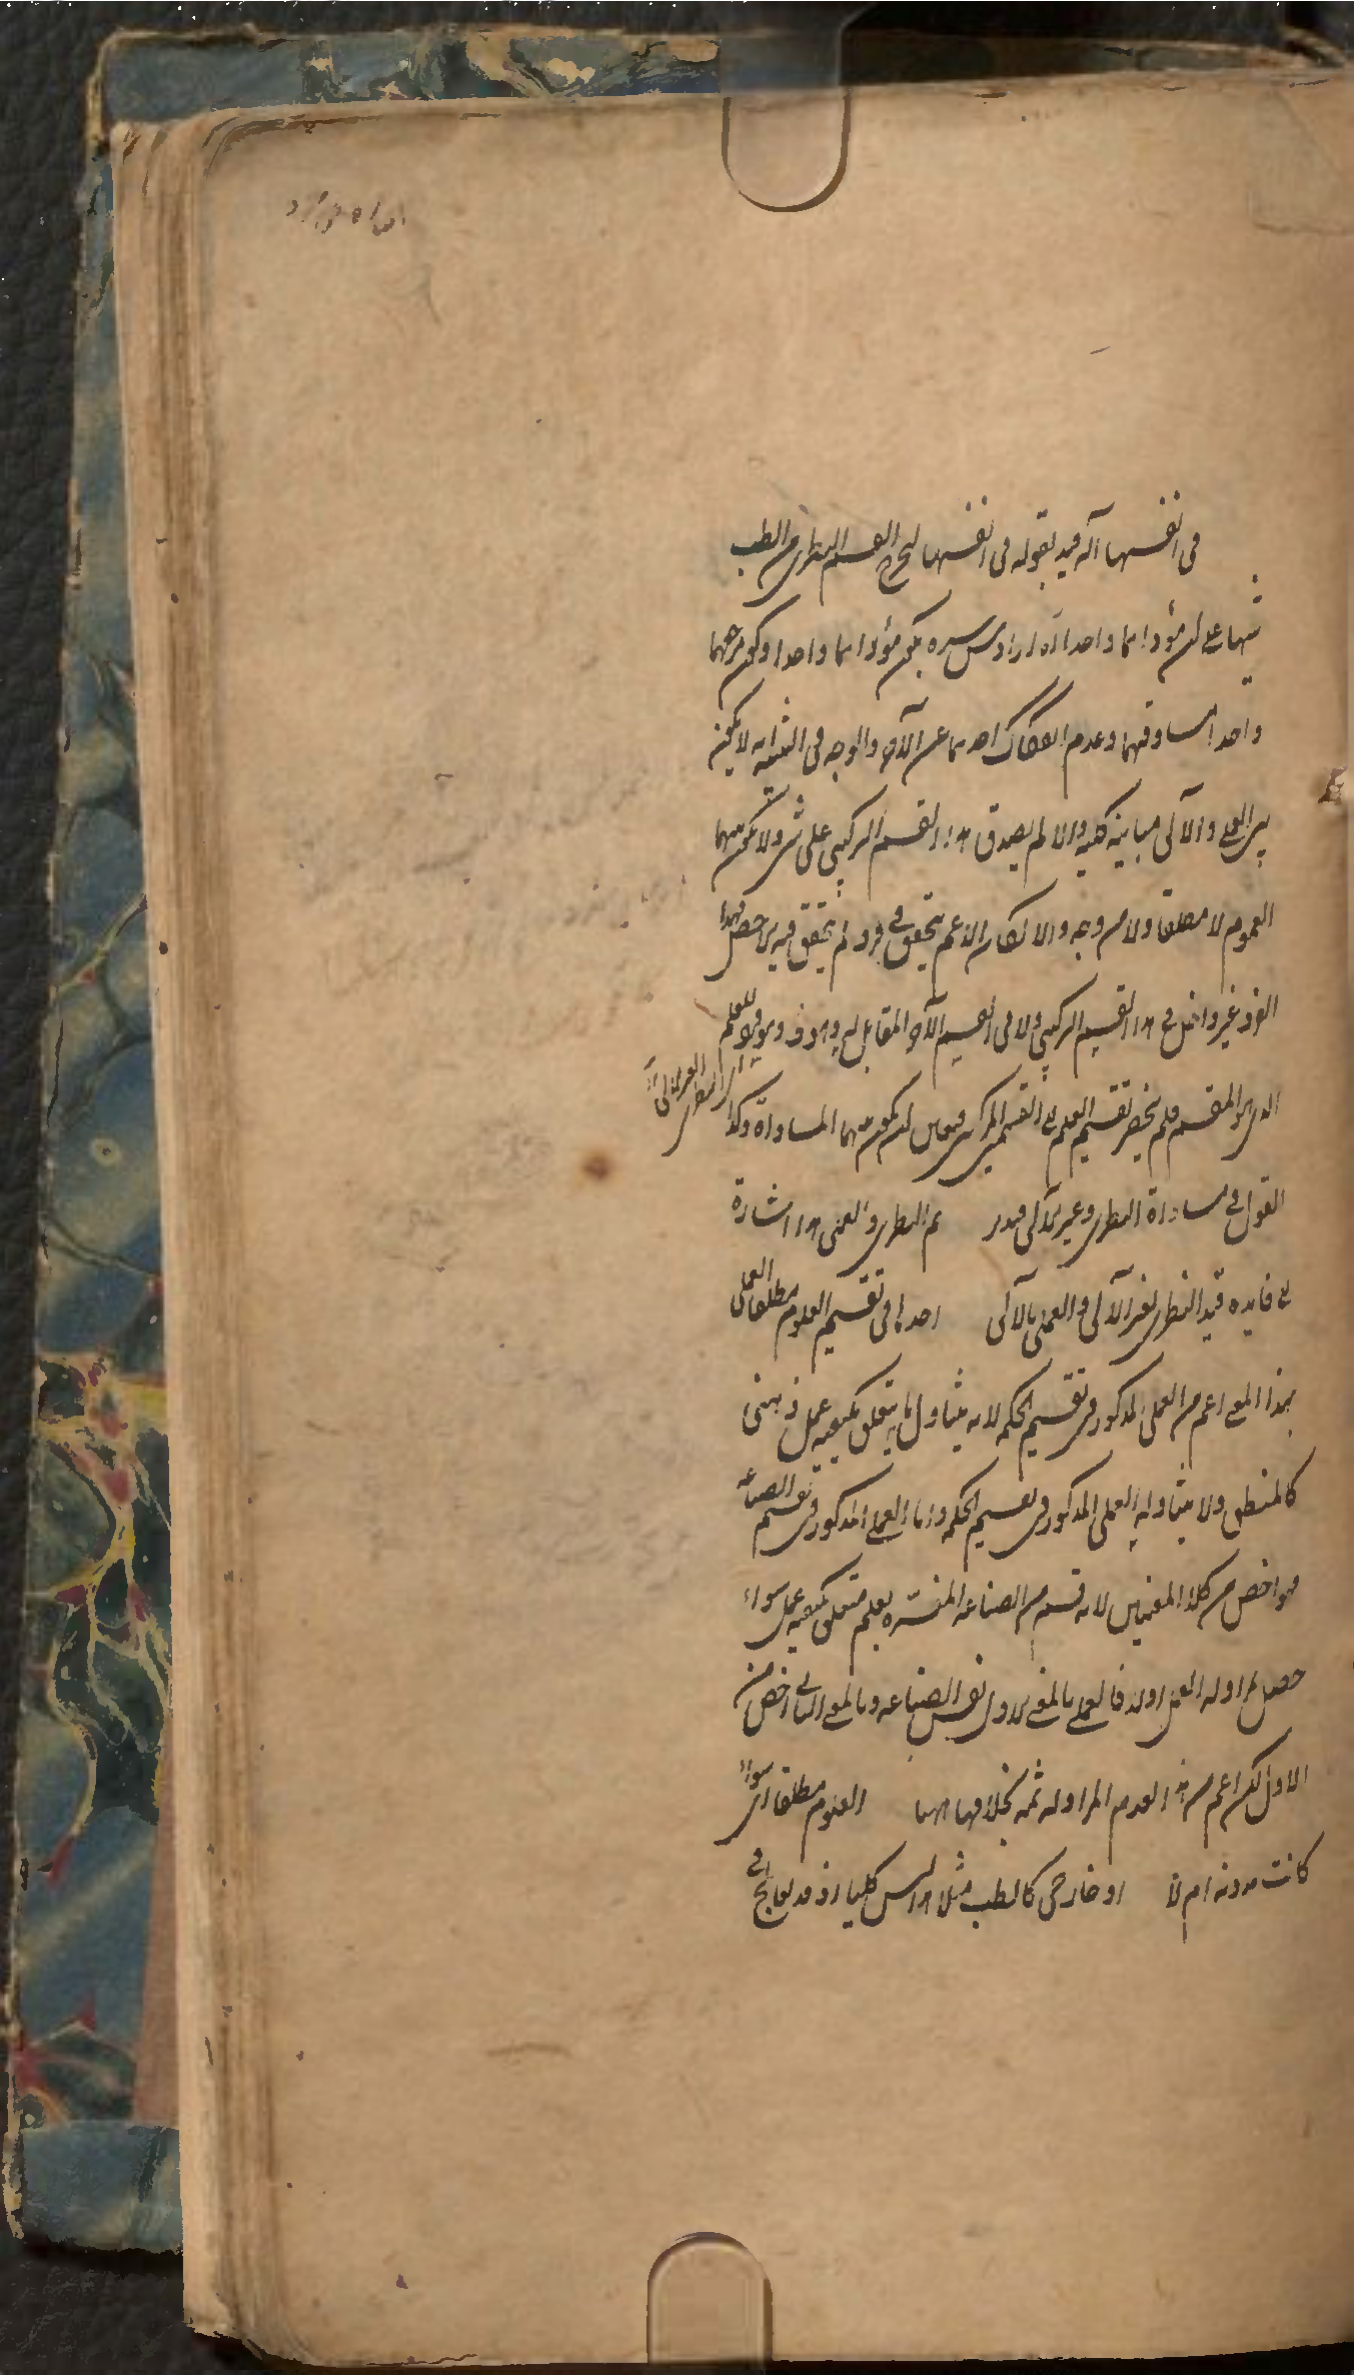 في انفسها آه قيد بقوله في انفسها ليخرج القسم النظري من الطب
تنبيها على ان مؤداهما واحد اه اراد قدس سره بكون مؤداهما واحدا وكون مرجعهما
واحدا مساوقتهما وعدم انفكاك احدهما عن الآخر والوجه في التنبيه انه لا يمكن
بين العملي والآلي مباينة كلية والا لم يصدق هذا القسم التركيبي على شئ ولا يمكن بينهما
العموم لا مطلقا ولا من وجه والا لكان الاعم يتحقق في فرد لم يتحقق فيه الاخص فهذا
الفرد غير داخل في هذا القسم التركيبي ولا في القسم الآخر المقابل له وهو فرد للعلم
الذي هو المقسم فلم ينحصر تقسيم العلم في القسمين المذكورين فتعين ان يكون بينهما المساواة وكذا
اي النظري الغير الآلي
القول في مساواة النظري وغير الآلي فتدبر ثم النظري والعملي هذا اشارة
الى فايده قيد النظري بغير الآلي والعملي بالآلي احدها في تقسيم العلوم مطلقا العملي
بهذا المعنى اعم من العملي المذكور في تقسيم الحكمه لانه يتناول ما يتعلق بكيفيه عمل ذهني
كالمنطق ولا يتناوله العملي المذكور في تقسيم الحكمه واما العملي المذكور في تقسيم الصناعه
فهو اخص من كلا المعنيين لانه قسم من الصناعه المفسره بعلم متعلق بكيفيه عمل سواء
حصل بمزاوله العمل اولا فالعملي بالمعنى الاول نفس الصناعه وبالمعنى الثاني اخص من
الاول لكن اعم من هذا لعدم المزاوله ثمه بخلافها ههنا العلوم مطلقا اي سواء
كانت مدونه ام لا او خارجي كالطب مثلا هذا ليس كليا اذ قد يعالج في